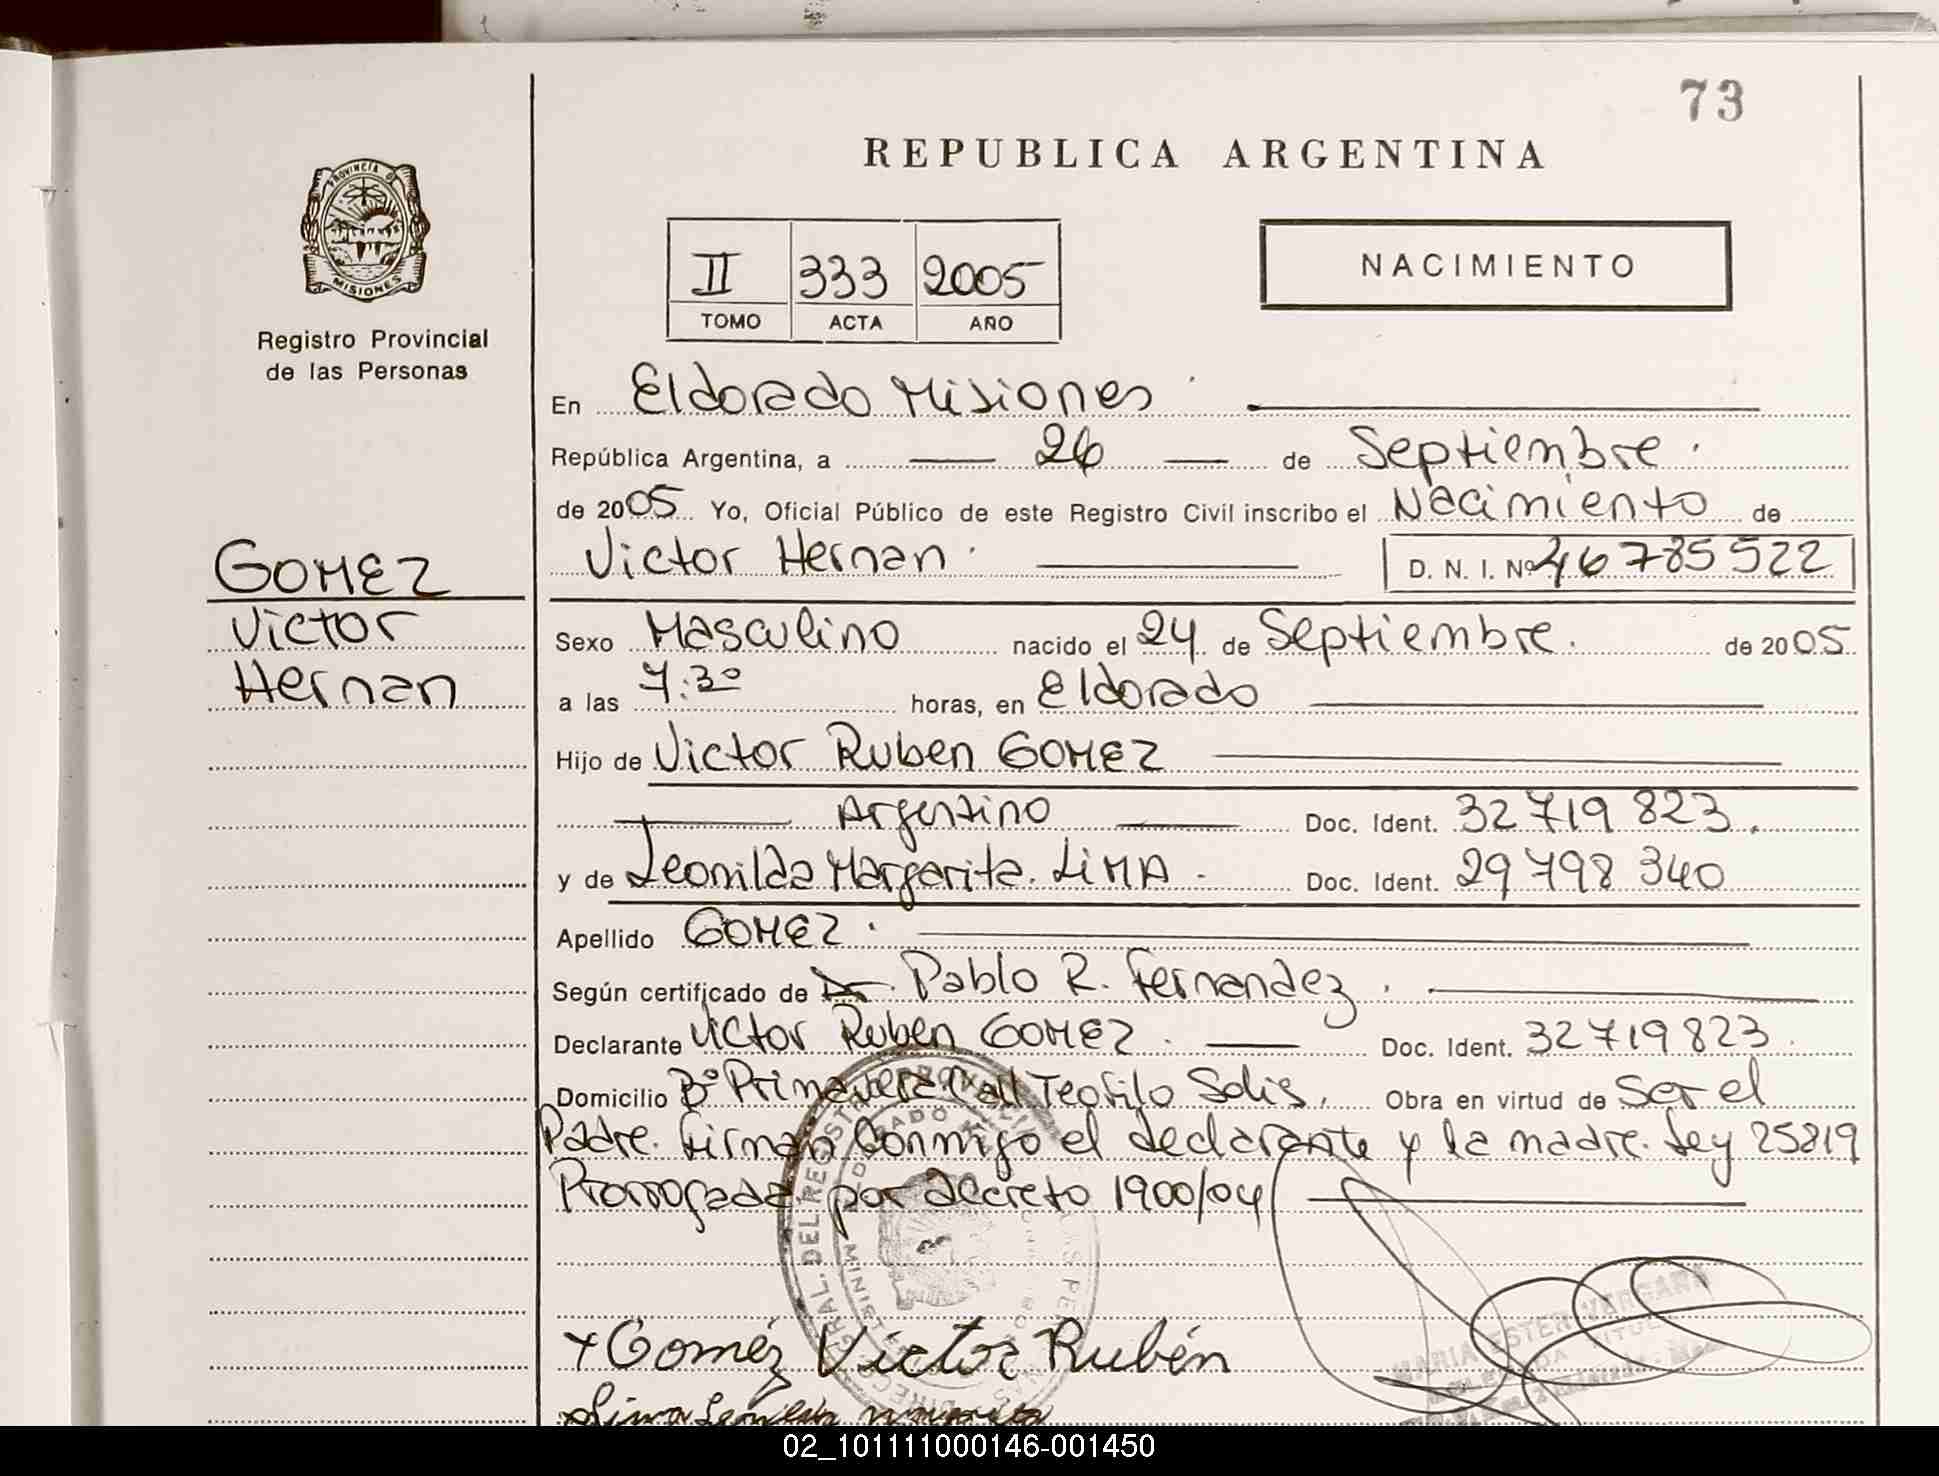 73
REPUBLICA ARGENTINA
PROVINCIA D
MISIONES
Registro Provincial
de las Personas
II 333 2005
TOMO ACTA AÑO
NACIMIENTO
En Eldorado Misiones
República Argentina, a 26 de Septiembre
de 2005 Yo, Oficial Público de este Registro Civil inscribo el Nacimiento de
Victor Hernan D. N. I. Nº 46785522
GOMEZ
Victor
Hernan
Sexo Masculino nacido el 24 de Septiembre de 2005
a las 7:30 horas, en Eldorado
Hijo de Victor Ruben GOMEZ
Argentino Doc. Ident. 32719823
y de Leonilda Margarita LIMA Doc. Ident. 29798340
Apellido GOMEZ
Según certificado de Dr. Pablo R. Fernandez
Declarante Victor Ruben GOMEZ Doc. Ident. 32719823
Domicilio Bº Primavera Call Teofilo Solis, Obra en virtud de Ser el
Padre. Firman Conmigo el declarante y la madre. Ley 25819
Prorrogada por decreto 1900/04
MARIA ESTER VERGARA
+ Goméz Victor Rubén
Lima
02_101111000146-001450